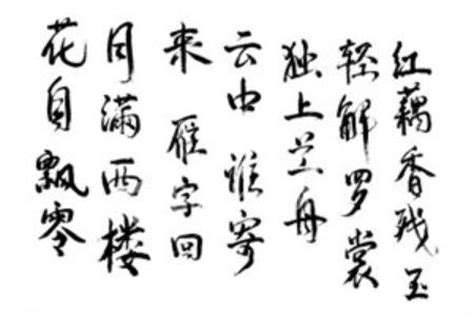 红藕香残玉
轻解罗裳
独上兰舟
云中谁寄
来 雁字回
月满西楼
花自飘零